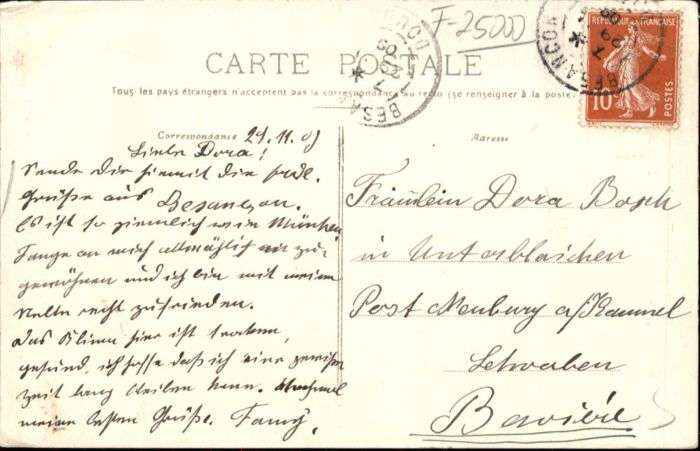 F-25000
CARTE POSTALE
Tous les pays étrangers n'acceptent pas la correspondance au recto (se renseigner à la poste)
REPUBLIQUE FRANÇAISE
10
POSTES
BESANÇON
BESANÇON
Correspondance
Adresse
Liebe Dora!
Sende Dir hiemit die
Grüße aus Besançon.
Es ist so ziemlich wie München
Fange an mich allmählich zu
gewöhnen und ich bin mit meiner
Stelle recht zufrieden.
Das Klima hier ist trocken,
gesund, ich hoffe daß ich eine gewisse
Zeit lang bleiben kann.
meine besten Grüße. Fanny.
Fräulein Dora Bosch
in Unterblaichen
Post Neuburg a/Kammel
Schwaben
Bavière